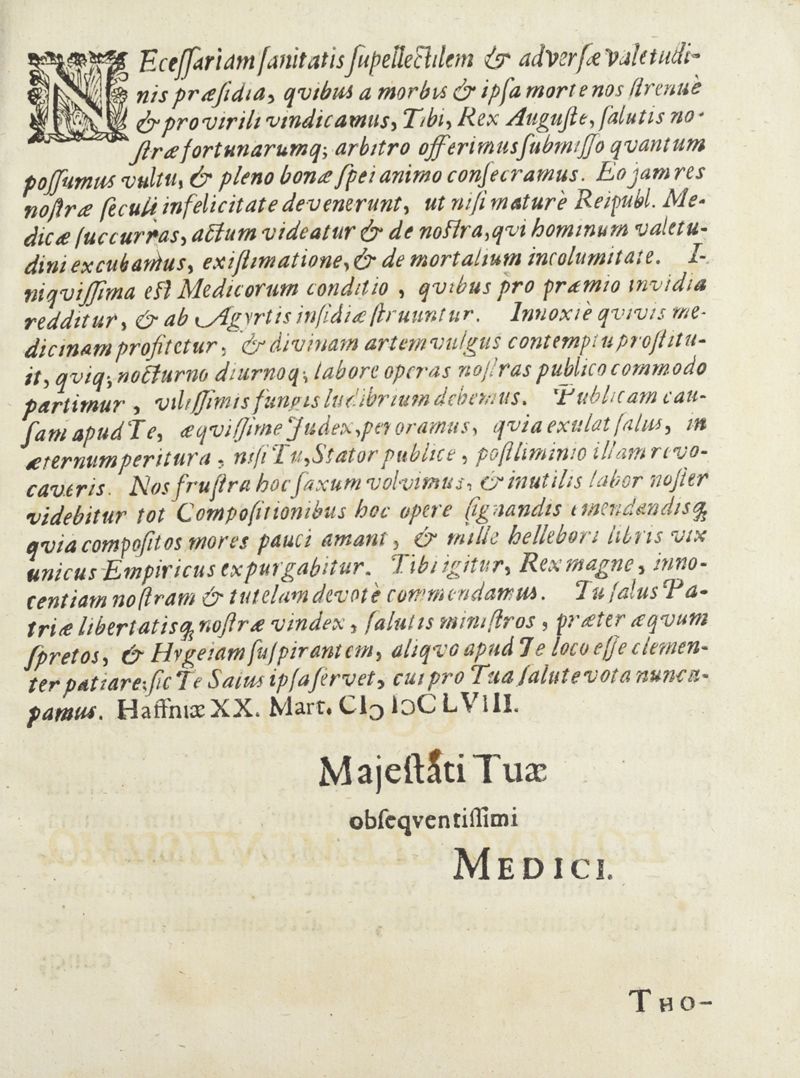 NEceſſariam ſanitatis ſupellectilem & adverſæ valetudi-
nis præſidia, qvibus a morbis & ipſa morte nos ſtrenuè
& pro virili vindicamus, Tibi, Rex Auguſte, ſalutis no-
ſtræ fortunarumq; arbitro offerimus ſubmiſſo qvantum
poſſumus vultu, & pleno bonæ ſpei animo conſecramus. Eo jam res
noſtræ ſeculi infelicitate devenerunt, ut niſi maturè Reipubl. Me-
dicæ ſuccurras, actum videatur & de noſtra, qvi hominum valetu-
dini excubamus, exiſtimatione, & de mortalium incolumitate. I-
niqviſſima eſt Medicorum conditio, qvibus pro præmio invidia
redditur, & ab Agyrtis inſidiæ ſtruuntur. Innoxiè qvivis me-
dicinam profitetur, & divinam artem vulgus contemptu proſtitu-
it, qviq; nocturno diurnoq; labore operas noſtras publico commodo
partimur, viliſſimis fungis ludibrium debemus. Publicam cau-
ſam apud Te, æqviſſime Judex, peroramus, qvia exulat ſalus, in
æternum peritura, niſi Tu, Stator publice, poſtliminio illam revo-
caveris. Nos fruſtra hoc ſaxum volvimus, & inutilis labor noſter
videbitur tot Compoſitionibus hoc opere ſignandis emendandisq;
qvia compoſitos mores pauci amant, & mille hellebori libris vix
unicus Empiricus expurgabitur. Tibi igitur, Rex magne, inno-
centiam noſtram & tutelam devotè commendamus. Tu ſalus Pa-
triæ libertatisq; noſtræ vindex, ſalutis miniſtros, præter æqvum
ſpretos, & Hygeiam ſuſpirantem, aliqvo apud Te loco eſſe clemen-
ter patiare; ſic Te Salus ipſa ſervet, cui pro Tua ſalute vota nuncu-
pamus. Haffniæ XX. Mart. CIↃ IↃC LVIII.
Majeſtati Tuæ
obſeqventiſſimi
MEDICI.
THO-